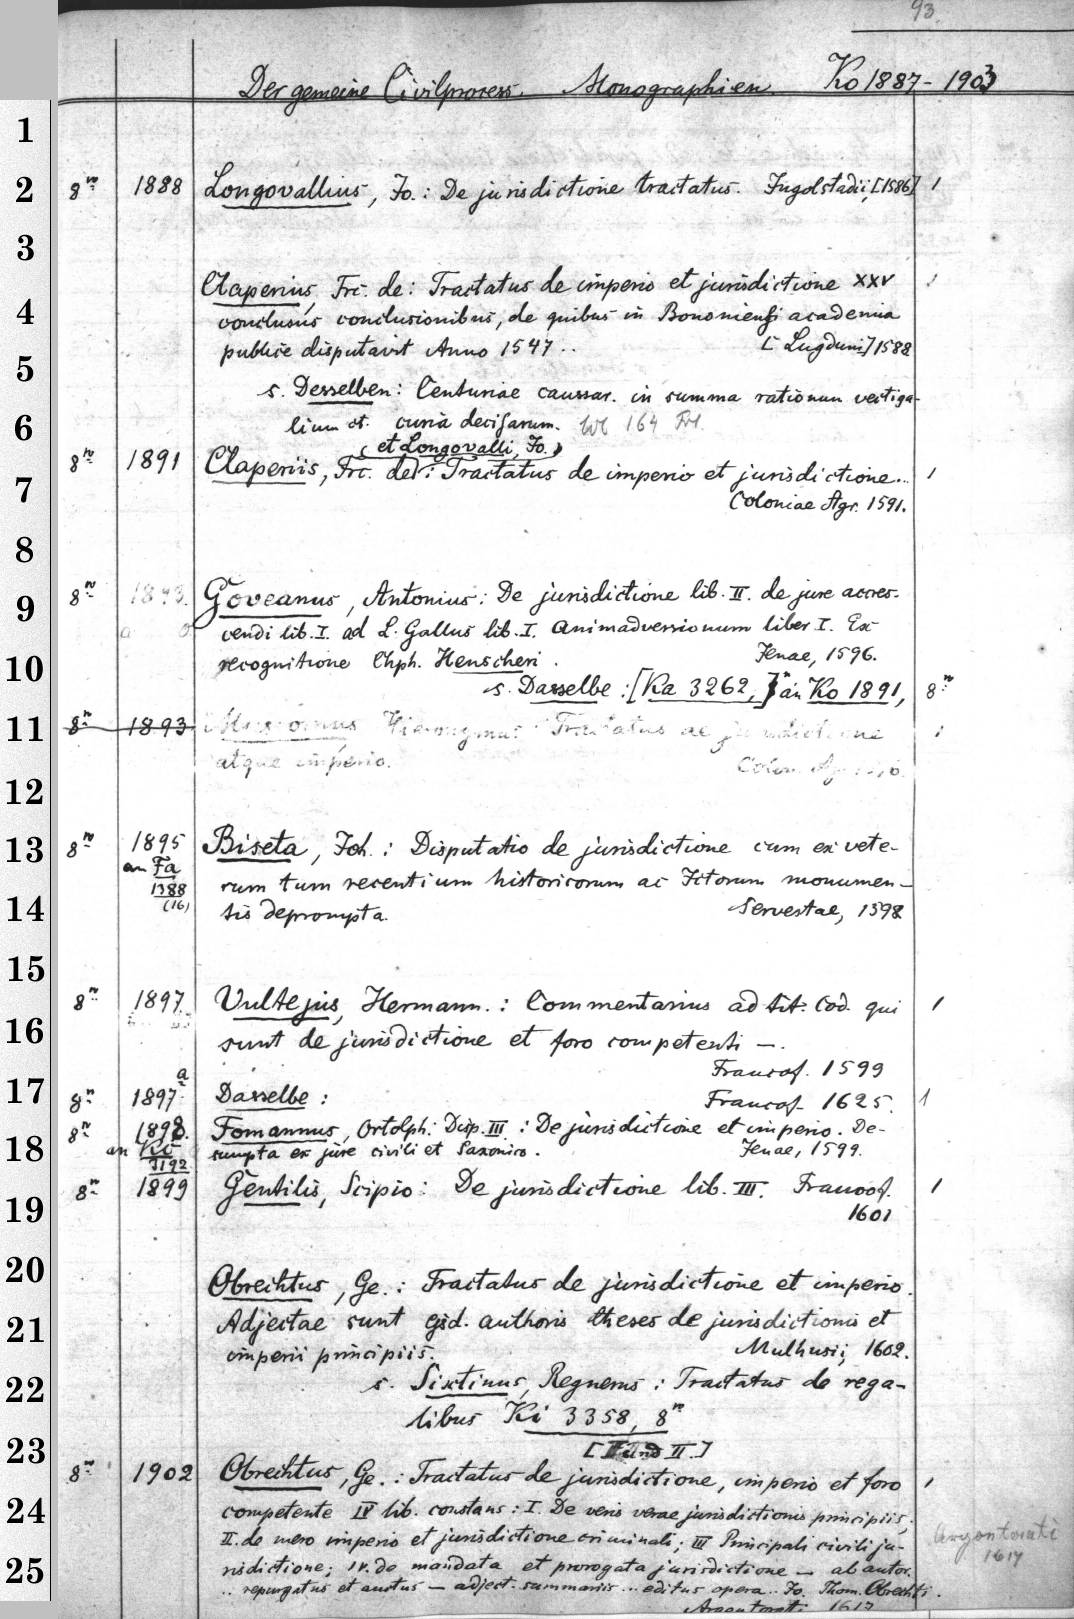 93
Der gemeine Civilprocess. Monographien. Ko 1887 - 1903
1
2 8n 1888 Longovallius, Jo.: De jurisdictione tractatus. Ingolstadii, [1586] 1
3
Claperius, Frc. de: Tractatus de imperio et jurisdictione XXV 1
4 conclusus conclusionibus, de quibus in Bononiensi academia
publice disputavit Anno 1547 .. [Lugduni] 1588
5 s. Desselben: Centuriae caussar. in summa rationum vectiga-
6 lium et. curia decisarum. 164
(et Longovalli, Jo.)
8n 1891 Claperiis, Frc. de: Tractatus de imperio et jurisdictione... 1
7 Coloniae Agr. 1591.
8
8n 1893. Goveanus, Antonius: De jurisdictione lib. II. de jure accres-
9 cendi lib. I. ad L. Gallus lib. I. Animadversionum liber I. Ex
10 recognitione Chph. Henscheri. Jenae, 1596.
s. Dasselbe: [Ka 3262,] an Ko 1891, 8n
11 8n 1893 Hieronymus: Tractatus de jurisdictione 1
atque imperio. Colon. Agr.
12
13 8n 1895 Biseta, Joh.: Disputatio de jurisdictione cum ex vete-
an Fa 1388 (16) rum tum recentium historicorum ac Ictorum monumen-
14 tis deprompta. Servestae, 1598
15
8n 1897 Vultejus, Hermann.: Commentarius ad tit. Cod. qui 1
16 sunt de jurisdictione et foro competenti —.
Francof. 1599
17 8n 1897a Dasselbe: Francof. 1625. 1
8n 1898. Fomannus, Ortolph. Disp. III: De jurisdictione et imperio. De-
18 an Ko 3192 sumpta ex jure civili et Saxonico. Jenae, 1599.
8n 1899 Gentilis, Scipio: De jurisdictione lib. III. Francof. 1
19 1601
20 Obrechtus, Ge.: Tractatus de jurisdictione et imperio.
21 Adjectae sunt ejsd. authoris theses de jurisdictionis et
imperii principiis. Mulhusii, 1602.
22 s. Sixtinus, Regnerus: Tractatus de rega-
libus Ki 3358, 8n
23 [I und II.]
8n 1902 Obrechtus, Ge.: Tractatus de jurisdictione, imperio et foro 1
24 competente IV lib. constans: I. De veris verae jurisdictionis principiis,
II. de mero imperio et jurisdictione criminali; III Principali civili ju- Argentorati
25 risdictione; IV. de mandata et prorogata jurisdictione — ab autor. 1617
.. repurgatus et auctus — adject. summariis... editus opera.. Jo. Thom. Obrechti.
Argentorati 1617